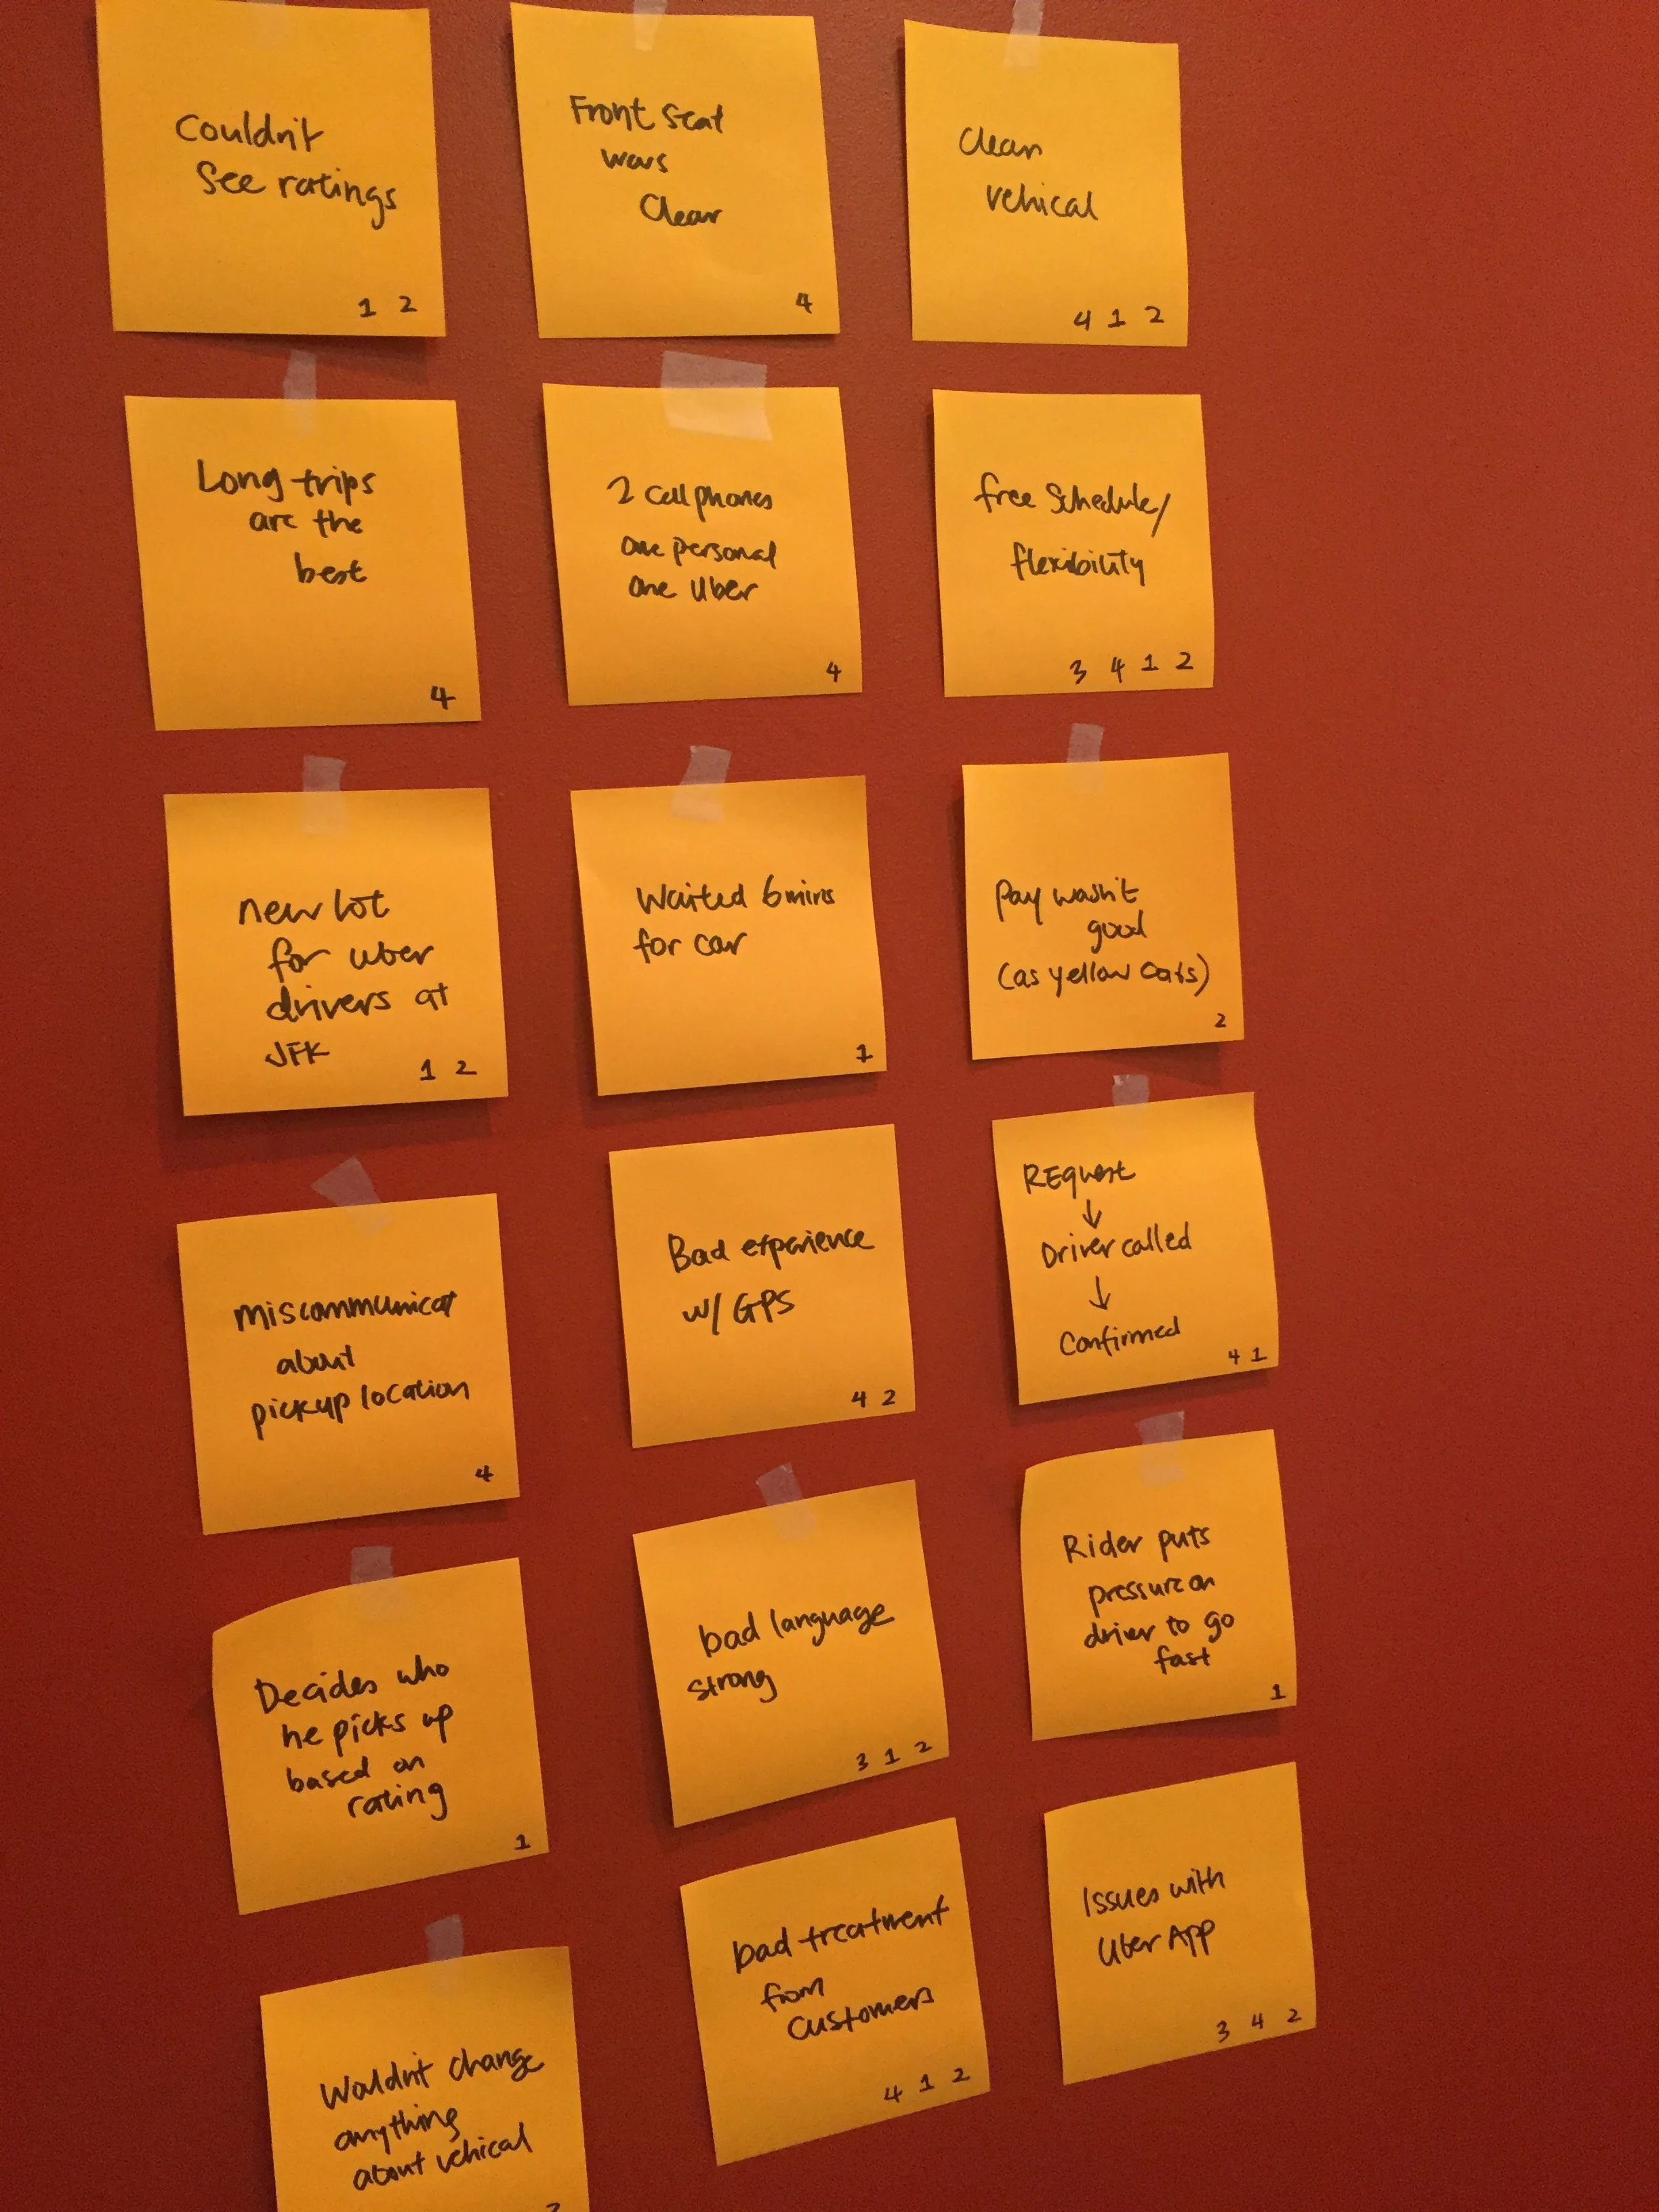 Couldn't
See ratings
1 2
Front seat
was
Clear
4
Clean
vehical
4 1 2
Long trips
are the
best
4
2 cell phones
one personal
one Uber
4
free schedule/
flexibility
3 4 1 2
new lot
for uber
drivers at
JFK
1 2
Waited 6 mins
for car
1
Pay wasn't
good
(as yellow cabs)
2
REquest
↓
Driver called
↓
Confirmed
4 1
miscommunicat
about
pickup location
4
Bad experience
w/ GPS
4 2
Rider puts
pressure on
driver to go
fast
1
Decides who
he picks up
based on
rating
1
bad language
strong
3 1 2
Issues with
Uber App
3 4 2
Wouldn't change
anything
about vehical
bad treatment
from
customers
4 1 2